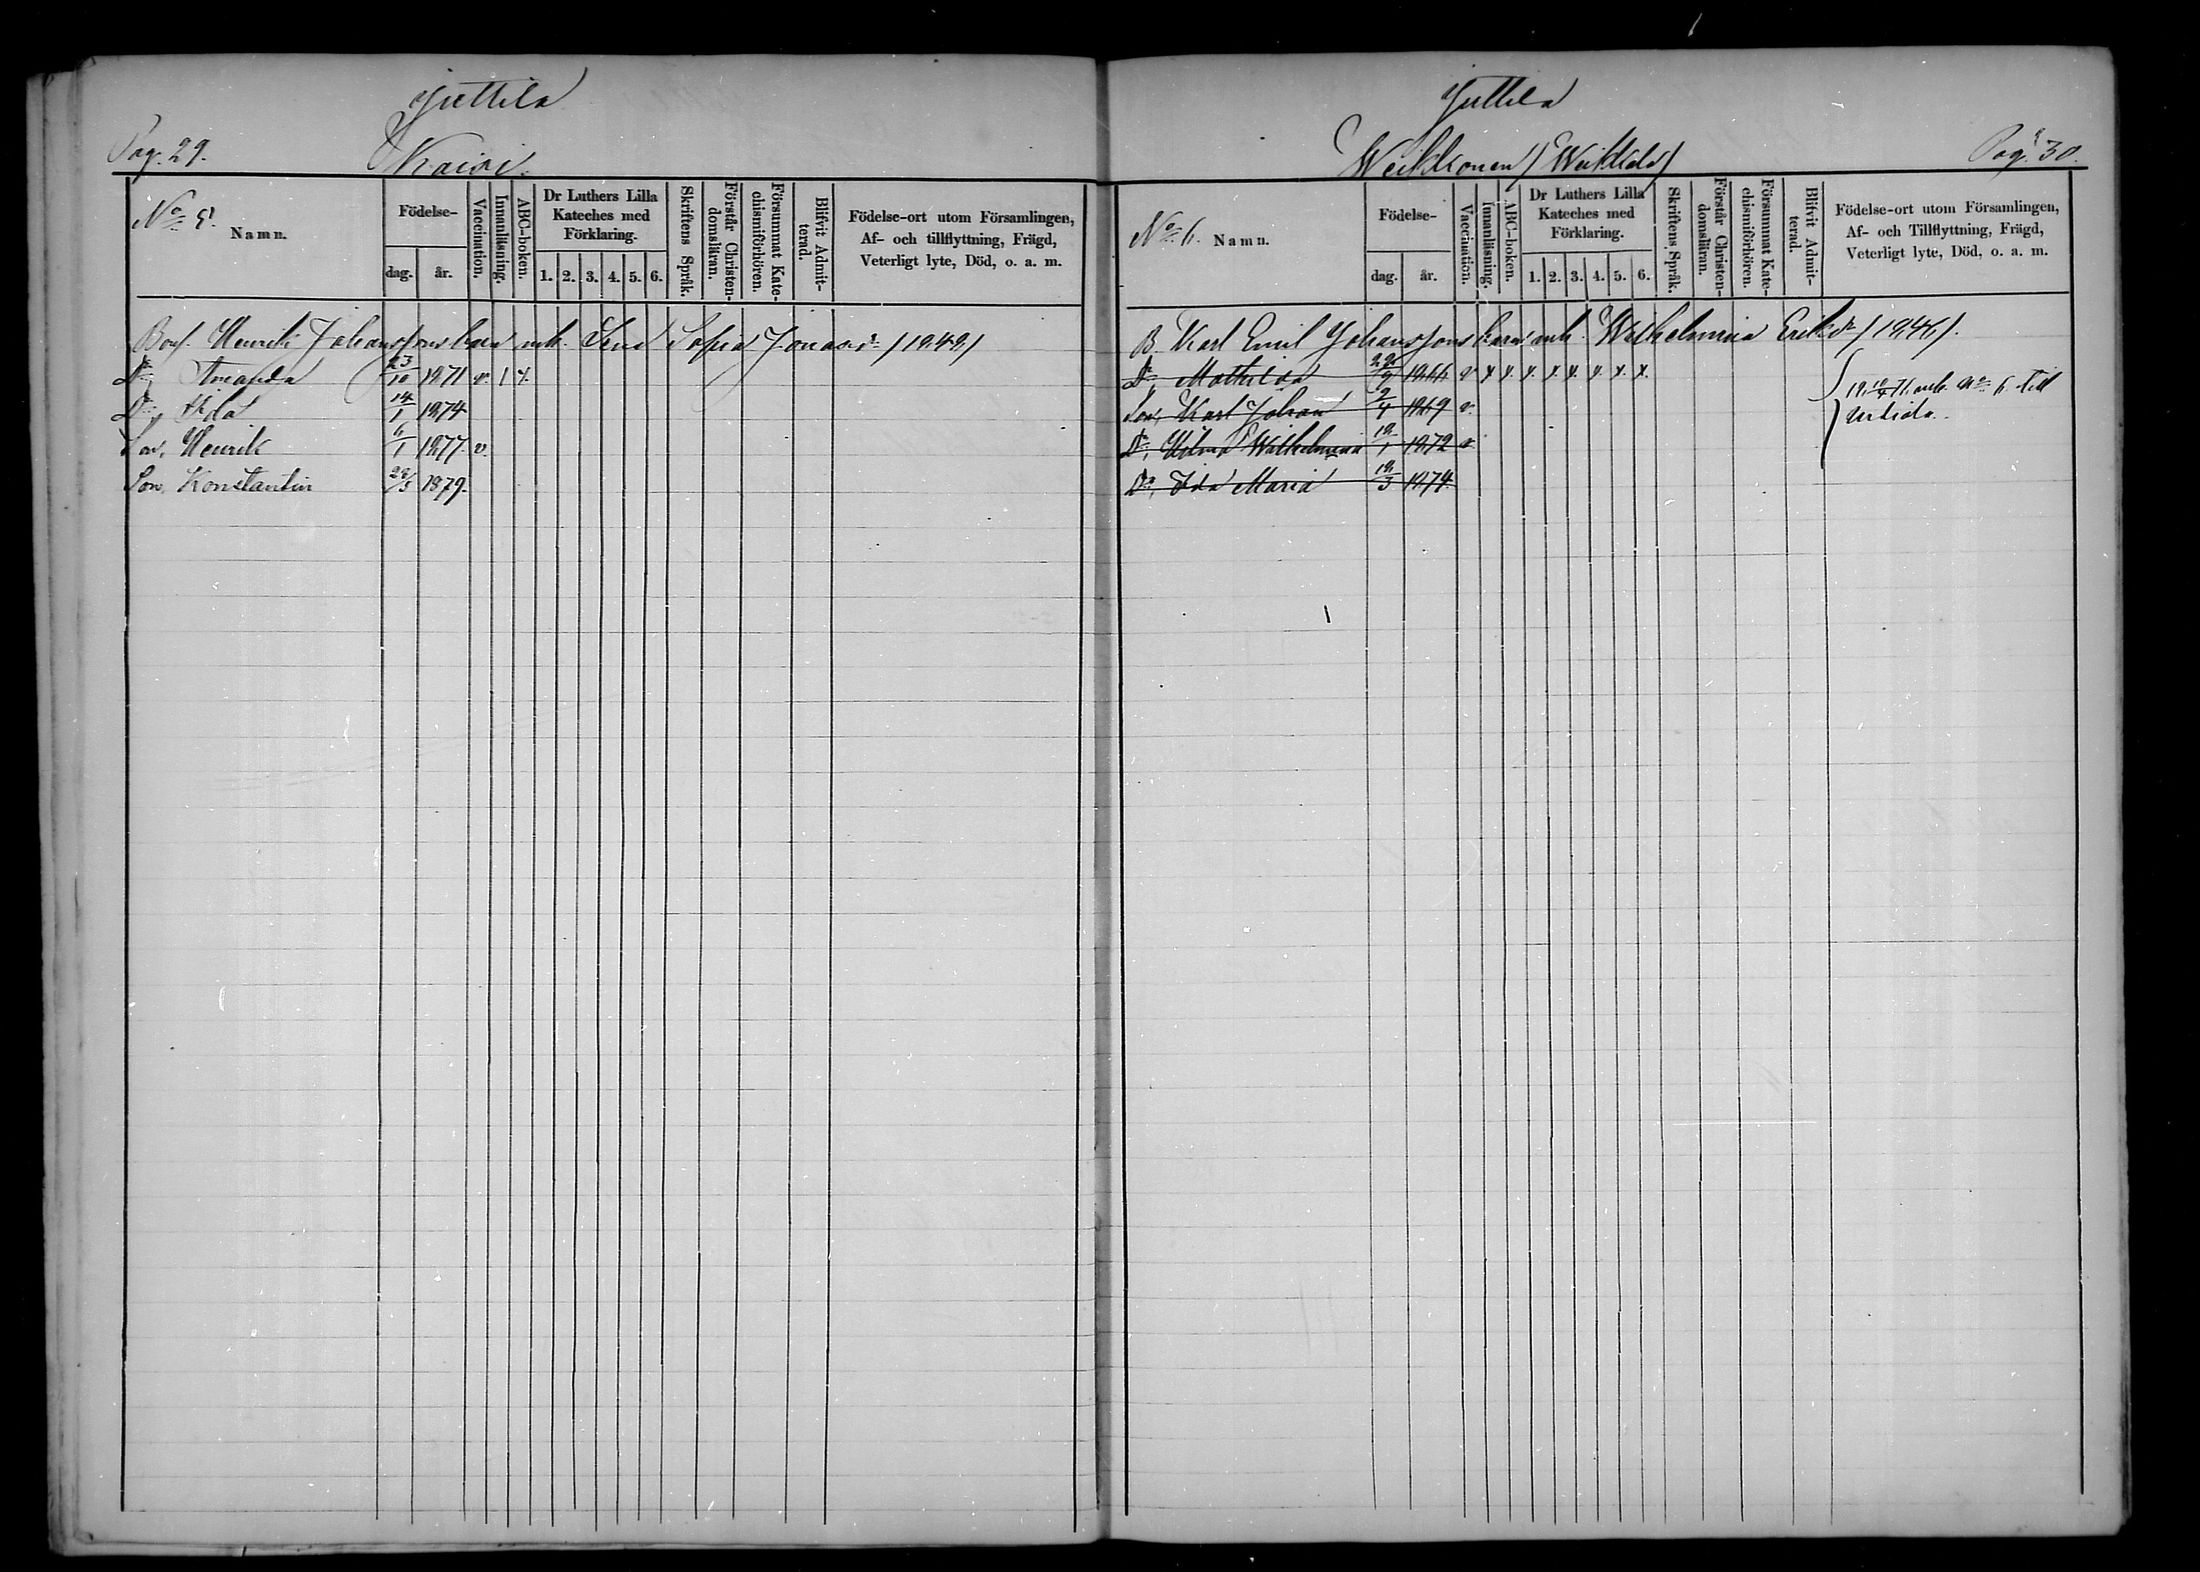 Juttila
Pag. 29.
Kaivi.
No 5.
Namn.
Födelse-
dag.
år.
Vaccination.
Innanläsning.
ABC-boken.
Dr Luthers Lilla
Kateches med
Förklaring.
1. 2. 3. 4. 5. 6.
Skriftens Språk.
Förstår Christen-
domsläran.
Försummat Kate-
chismiförhören.
Blifvit Admit-
terad.
Födelse-ort utom Församlingen,
Af- och tillflyttning, Frägd,
Veterligt lyte, Död, o. a. m.
Bonf. Henrik Johanssons barn mh. Sofia Jonasdr
Dr, Amanda 23/10 1871 v.
Dr, Ida 14/1 1874
Son, Henrik 6/1 1877. v.
Son, Konstantin 28/5 1879.
Juttila
Weikkonen (Weikkola)
Pag. 30.
No 6.
Namn.
Födelse-
dag.
år.
Vaccination.
Innanläsning.
ABC-boken.
Dr Luthers Lilla
Kateches med
Förklaring.
1. 2. 3. 4. 5. 6.
Skriftens Språk.
Förstår Christen-
domsläran.
Försummat Kate-
chismiförhören.
Blifvit Admit-
terad.
Födelse-ort utom Församlingen,
Af- och Tillflyttning, Frägd,
Veterligt lyte, Död, o. a. m.
B. Karl Emil Johanssons barn mh. Wilhelmina Eriksdr (1846).
Dr, Mathilda 1866 v x x. x. x. x. x. x. x.
Son, Karl Johan 2/4 1869 v.
Dr, Hilma Wilhelmina 18/1 1872 v
Dr, Ida Maria 18/3 1874.
No 6. till